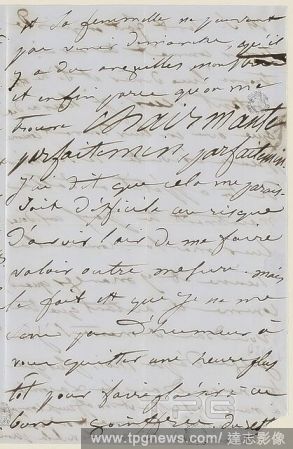 et sa femme ne pouvant
pas venir dimanche, qu'il
y a du
et enfin parce qu'on me
trouve charmante
parfaitement, parfaitement
J'ai dit que cela me parais-
sait difficile au risque
d'avoir l'air de me faire
valoir outre mesure. mais
le fait est que je ne me
sens pas d'humeur à
vous quitter une heure plus
tôt pour faire plaisir à ce
bon du et
PG
www.tpgnews.com / 達志影像